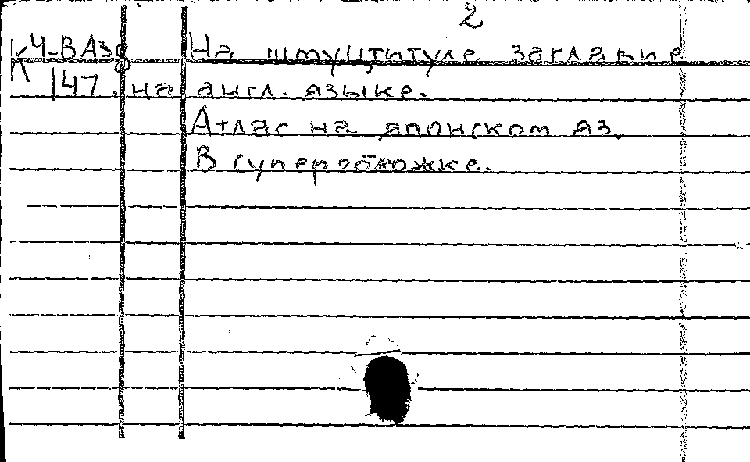 2
К4-ВАз8 На шмуцтитуле заглавие
147. на англ. языке.
Атлас на японском яз.
В суперобложке.